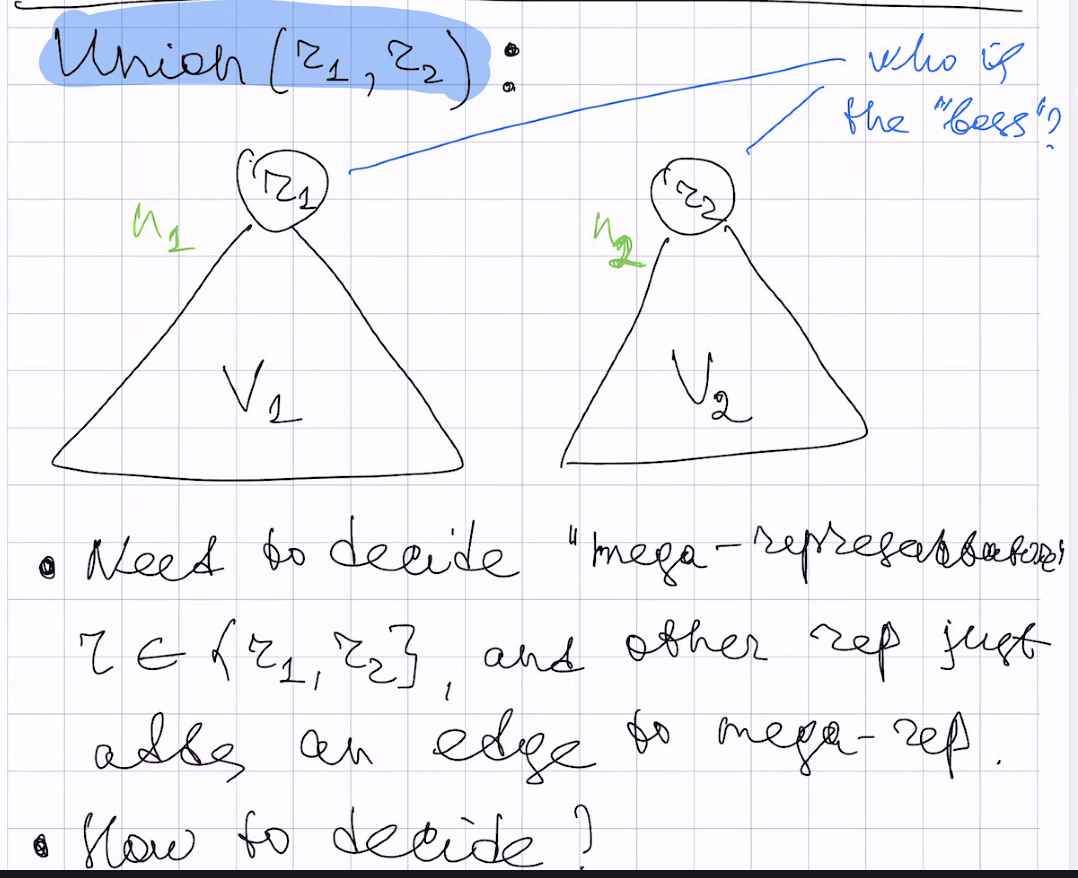 Union (r1, r2) :
who is
the "boss"?
r1
r2
n1
n2
V1
V2
• Need to decide "mega-representative"
r ∈ {r1, r2}, and other rep just
adds an edge to mega-rep.
• How to decide?